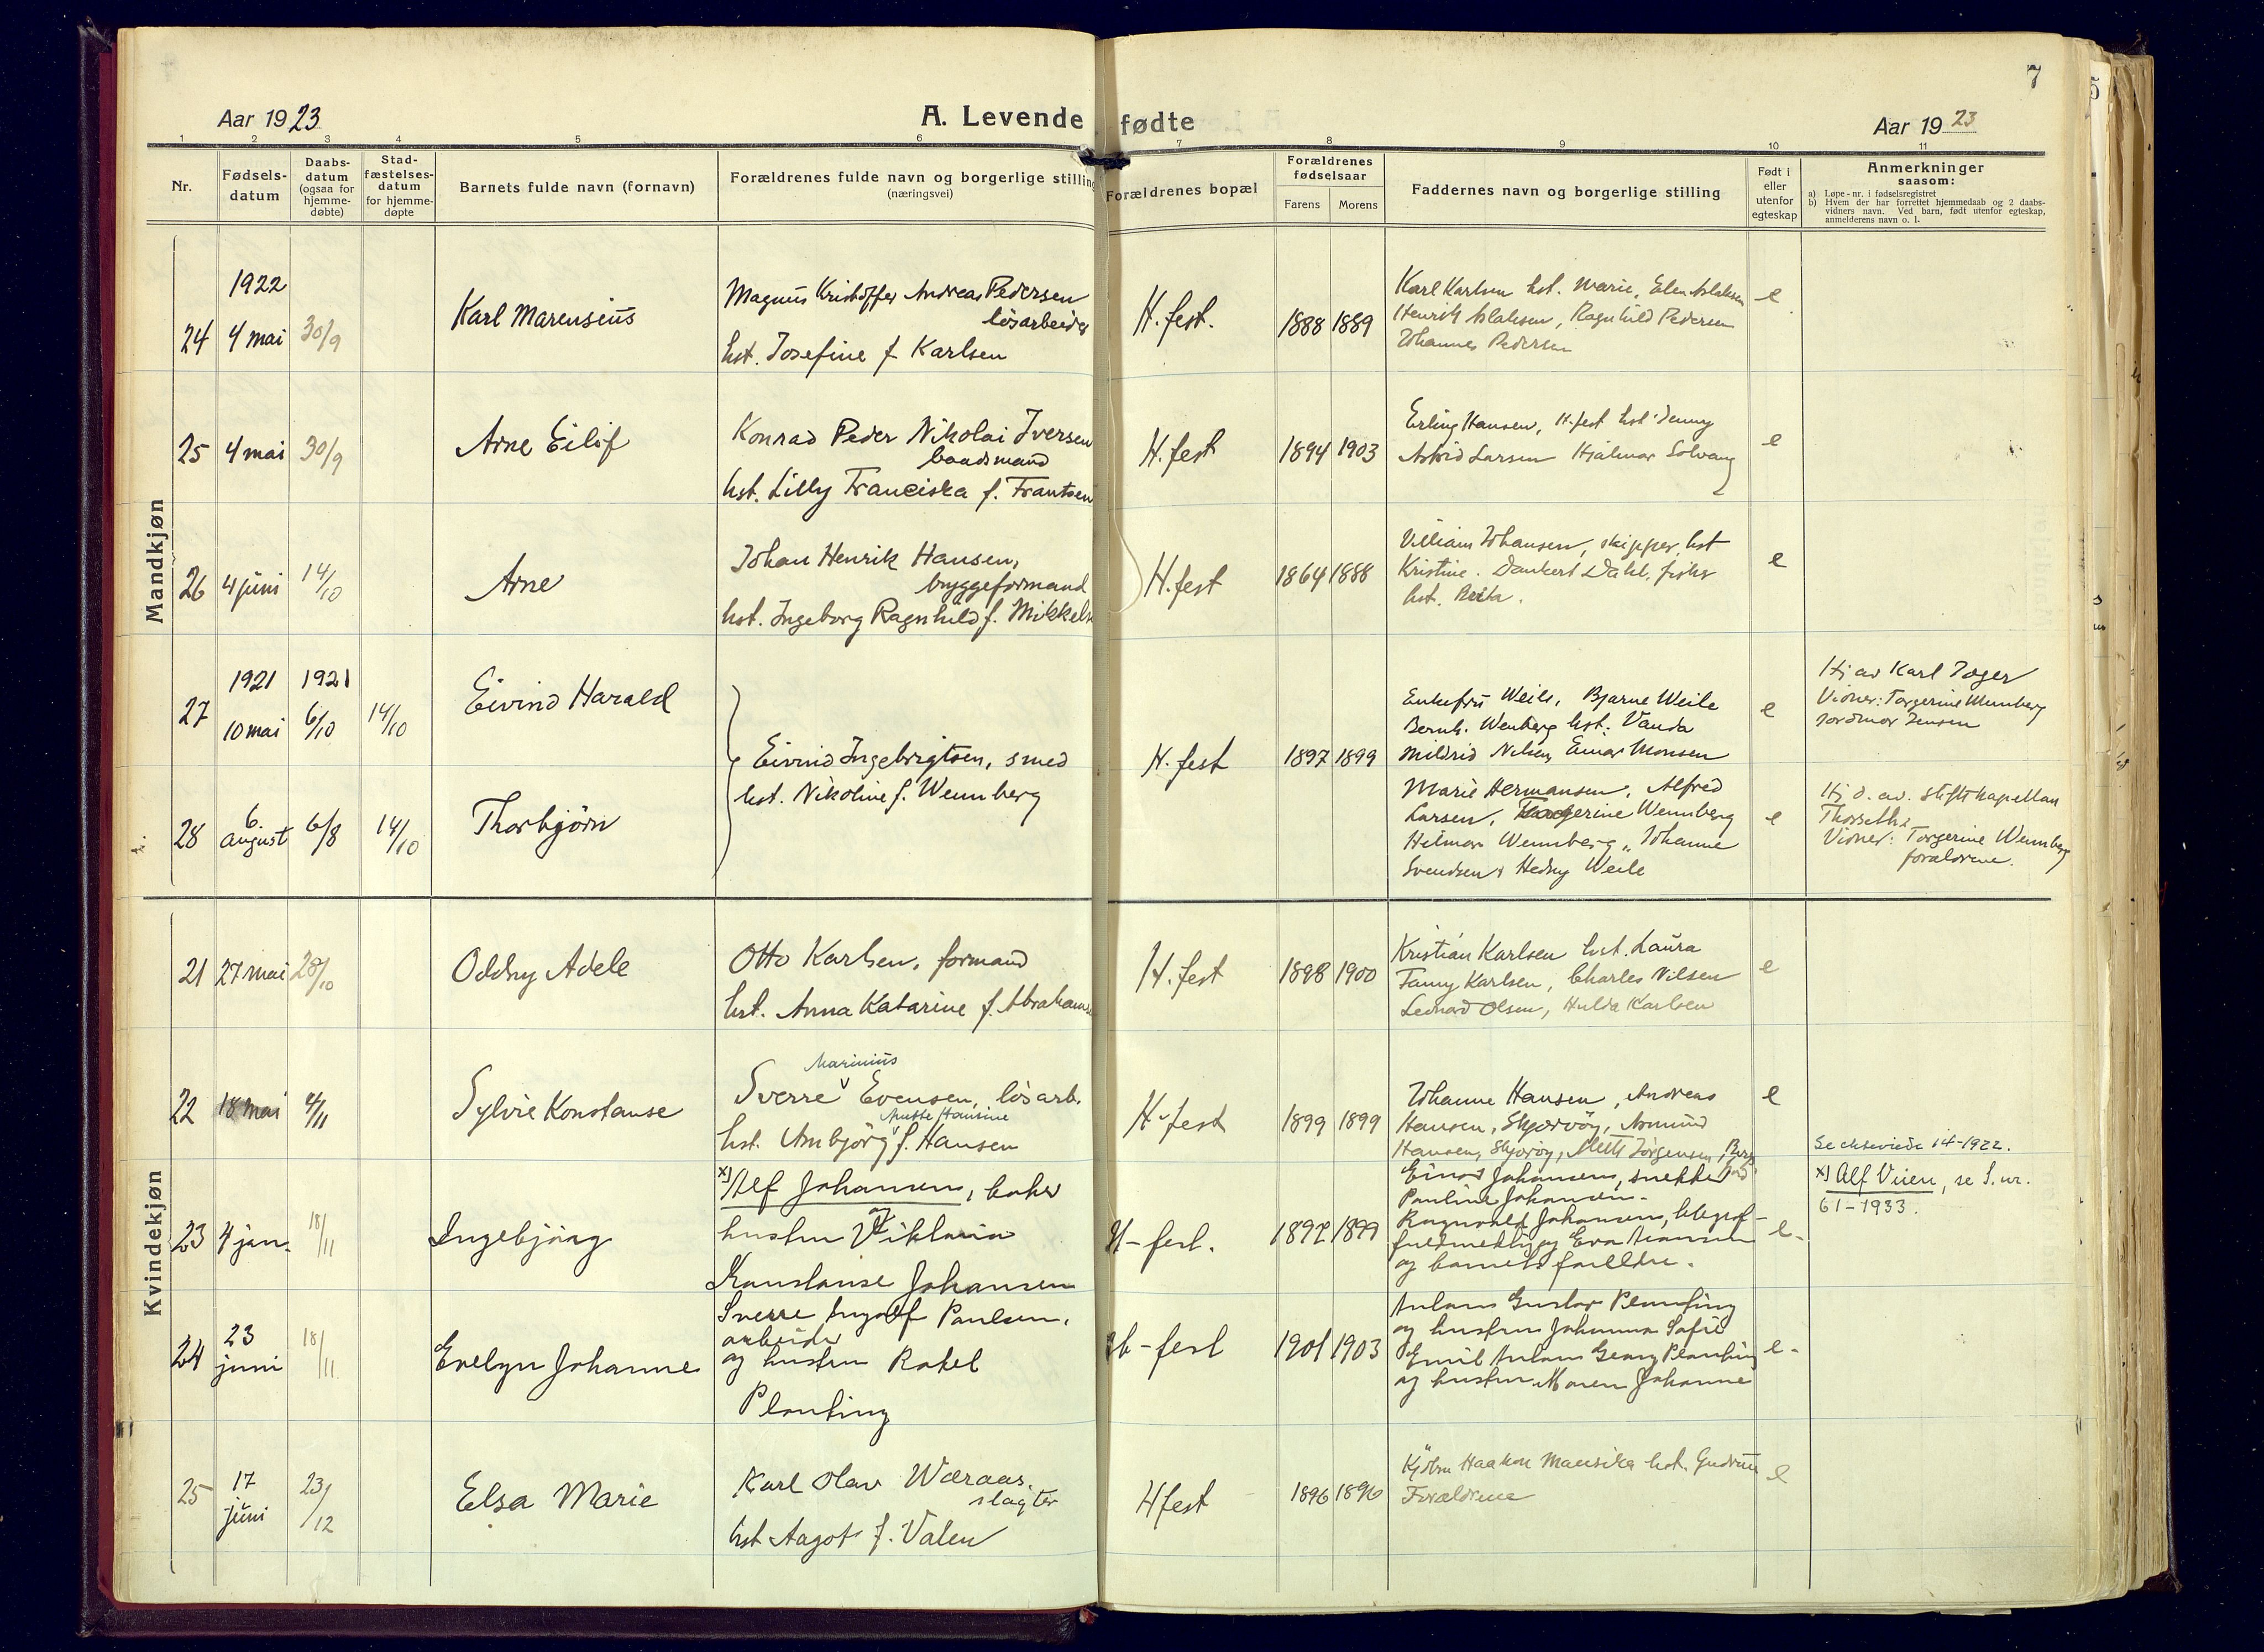 7
Aar 1923
A. Levende fødte
Aar 1923
1 2 3 4 5 6 7 8 9 10 11
Nr.
Fødsels-
datum
Daabs-
datum
(ogsaa for
hjemme-
døbte)
Stad-
fæstelses-
datum
for hjemme-
døpte
Barnets fulde navn (fornavn)
Forældrenes fulde navn og borgerlige stilling
(næringsvei)
Forældrenes bopæl
Forældrenes
fødselsaar
Farens
Morens
Faddernes navn og borgerlige stilling
Født i
eller
utenfor
egteskap
Anmerkninger
saasom:
a) Løpe-nr. i fødselsregistret
b) Hvem der har forrettet hjemmedaab og 2 daabs-
vidners navn. Ved barn, født utenfor egteskap,
anmelderens navn o. l.
Mandkjøn
24
1922
4 mai
30/9
Karl Marensius
Magnus Kristoffer Andreas Pedersen
løsarbeider
hst. Josefine f Karlsen
H. fest.
1888
1889
Karl Karlsen hst. Marie, Elen Aslaksen
Henrik Aslaksen, Ragnhild Pedersen
Johannes Pedersen
e
25
4 mai
30/9
Arne Eilif
Konrad Peder Nikolai Iversen
baadsmand
hst. Lilly Franciska f. Frantsen
H. fest
1894
1903
Erling Hansen, H. fest hst. Jenny
Astrid Larsen Hjalmar Solvang
e
26
4 juni
14/10
Arne
Johan Henrik Hansen,
bryggeformand
hst. Ingeborg Ragnhild f. Mikkels
H. fest
1864
1888
Villiam Johansen, skipper, hst
Kristine. Dankert Dahl, fisker
hst. Berta.
e
27
1921
10 mai
1921
6/10
14/10
Eivind Harald
Eivind Ingebrigtsen, smed
hst. Nikoline f. Wennberg
H. fest
1897
1899
Enkefru Weile, Bjarne Weile
Bernh. Wenberg hst. Vanda
Mildrid Nilsen, Einar Monsen
e
Hj av Karl Jæger
Vidner: Torgerine Wennberg
jordmor Jensen
28
6.
august
6/8
14/10
Thorbjørn
Marie Hermansen, Alfred
Larsen, Torgerine Wennberg
Hilmar Wennberg, Johanne
Svendsen, Hedvig Weile
e
Hj d. av. stiftskapellan
Thorseth.
Vidner: Torgerine Wennberg
forældrene.
Kvindekjøn
21
27 mai
28/10
Oddny Adele
Otto Karlsen, formand
hst. Anna Katarine f. Abrahams
H. fest
1898
1900
Kristian Karlsen hst. Laura
Fanny Karlsen, Charles Nilsen
Leonard Olsen, Hulda Karlsen
e
22
18 mai
4/11
Sylvie Konstanse
Marinius
Sverre Evensen, løsarb.
Anette Hansine
hst. Arnbjørg f. Hansen
H. fest
1899
1899
Johanne Hansen, Andreas
Hansen, Skjærvøy, Asmund
Hansen, Skjærvøy, Meth Jørgensen,
e
23
4 jan.
18/11
Ingebjørg
x) Alf Johansen, baker
og
hustru Viktoria
Konstanse Johansen
H-fest.
1897
1899
Einar Johansen, snekker
Pauline Johansen.
Ragnvald Johansen, telegraf-
fuldmektig og Eva
og barnets forældre.
e.
Se ekteviede 14-1922.
x) Alf Viien, se S. nr.
61-1933.
24
23
juni
18/11
Evelyn Johanne
Sverre Ingolf Paulsen,
arbeider
og hustru Rakel
Planting
H-fest
1901
1903
Antons Gustav Planting
og hustru Johanna Sofie
Emil Antons Georg Planting
og hustru Maren Johanne
e-
25
17
juni
23/12
Elsa Marie
Karl Olav Wæraas,
slagter
hst Aagot f. Valen
H fest
1896
1896
Kjøbm Haakon Mausika hst. Gudrun
Forældrene
e